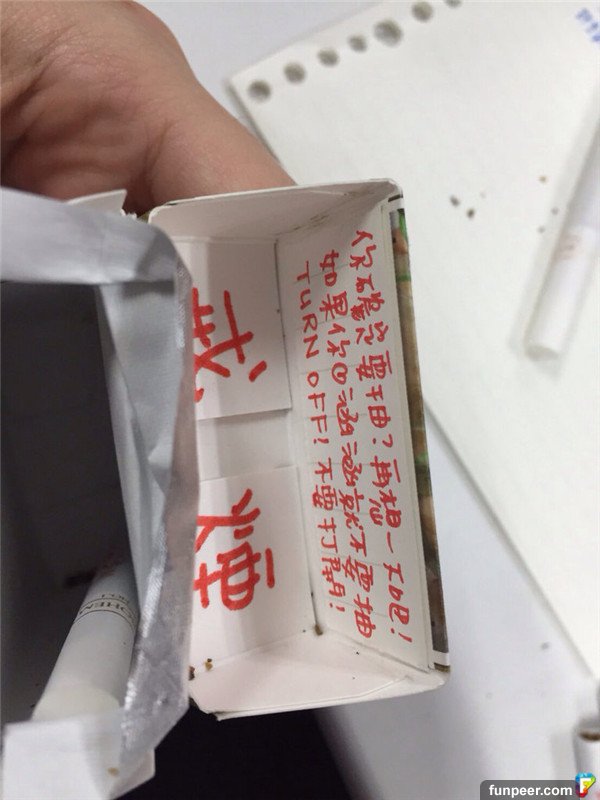 你確定要抽?再想一下吧!
如果你涵涵就不要抽
TURN OFF! 不要打開!
戒
煙
funpeer.com